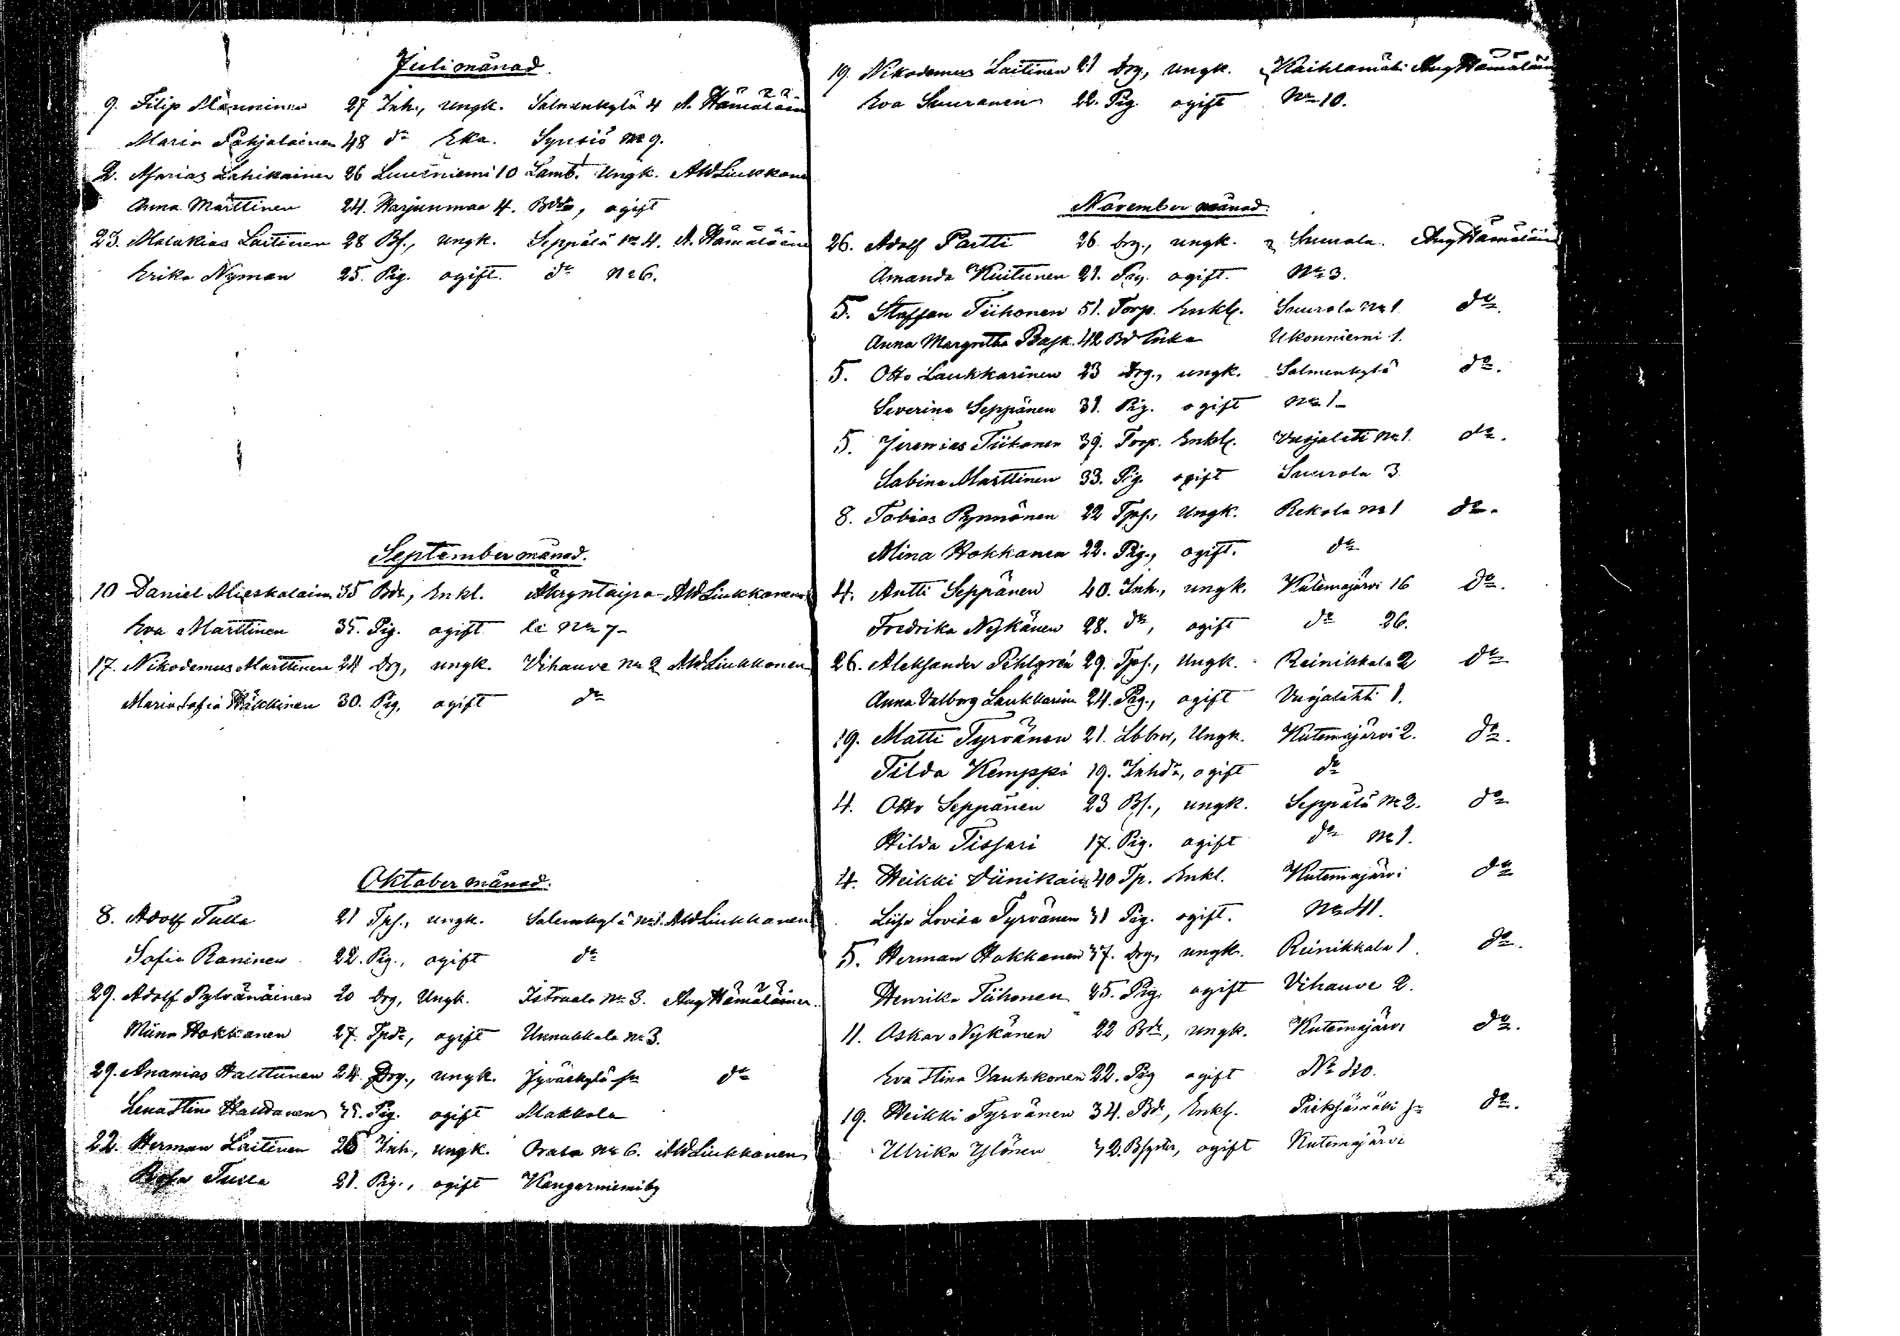 Juli månad.
9. Filip Manninen 27 Inh., ungk. Salmenkylä 4 A. Hämäläinen
Maria Pohjolainen 48 do Eka. Synsiö No 9.
2. Lahikainen 26 Suurniemi 10 Lamb. Ungk. AWLiukkonen
Anna Marttinen 24. Harjunmaa 4. Bdtr, ogift
23. Malakias Laitinen 28 Bs., ungk. Seppälä No 4. A. Hämäläinen
Erika Nyman 25. Pig. ogift. do No 6.
September månad.
10 Daniel Mieskolainen 35 Bde, Enkl. AWLiukkonen
Eva Marttinen 35. Pig. ogift le No 7-
17. Nikodemus Marttinen 24 Drg, ungk. Vihavue No 2 AWLiukkonen
Maria Sofia Häkkinen 30. Pig. ogift do
Oktober månad.
8. Adolf Tulla 21 Tps., ungk. Salmenkylä No 1. AWLiukkonen
Sofia Raninen 22. Pig., ogift do
29. Adolf Pylvänäinen 20 Drg, Ungk. Istruala No 3. Aug Hämäläinen.
Miina Hokkanen 27. Tpdr, ogift Unnukkala No 3.
29. Ananias Halttunen 24. Drg., ungk. Jyväskylä sn do
Lena Stina 35. Pig. ogift Makkola
22. Herman Laitinen 26 Inh., ungk. Orala No 6. AWLiukkonen
Rosa Tulla 21. Pig., ogift Kangasniemi by
19. Nikodemus Laitinen 21 Drg, ungk. Kaihlamäki Aug Hämäläinen
Eva Suuronen 22. Pig. ogift No 10.
November månad.
26. Adolf Partti 26 Drg., ungk. Suurola. Aug Hämäläinen
Amanda Kuitunen 21. Pig. ogift. No 3.
5. Staffan Tiihonen 51. Torp. Enkl. Suurola No 1 do.
Anna Margretha Bask 42 Bd Enka Ukonniemi 1.
5. Otto Laukkarinen 23 Drg., ungk. Salmenkylä do.
Severina Seppänen 31. Pig. ogift No 1-
5. Jeremias Tiihonen 39. Torp. Enkl. Vuojalahti No 1. do.
Sabina Marttinen 33. Pig. ogift Suurola 3
8. Tobias Pynnönen 22 Tps., Ungk. Rekola No 1 do.
Miina Hokkanen 22. Pig., ogift. do
4. Antti Seppänen 40. Inh., ungk. Kutemajärvi 16 do.
Fredrika Nykänen 28. do, ogift do 26.
26. Aleksander Pehlgrén 29. Tps., Ungk. Reinikkala 2 do
Anna Valborg Laukkarinen 24. Pig., ogift Vuojalahti 1.
19. Matti Tyrvänen 21. Ungk. Kutemajärvi 2. do.
Tilda Kemppi 19. Inhdr, ogift do
4. Otto Seppänen 23 Bs., ungk. Seppälä No 2. do
Hilda Tissari 17. Pig. ogift do No 1.
4. Heikki Viinikain 40 Tp. Enkl. Kutemajärvi do
Liisa Lovisa Tyrvänen 31 Pig. ogift. No 41.
5. Herman Hokkanen 37. Drg, ungk. Reinikkala 1. do.
Henrika Tiihonen 25. Pig. ogift Vihavue 2.
11. Oskar Nykänen 22 Bde, ungk. Kutemajärvi do.
Eva Stina Vauhkonen 22. Pig ogift No 20.
19. Heikki Tyrvänen 34. Bde, Enkl. Pieksämäki sn do.
Ulrika Ylönen 32. ogift Kutemajärvi